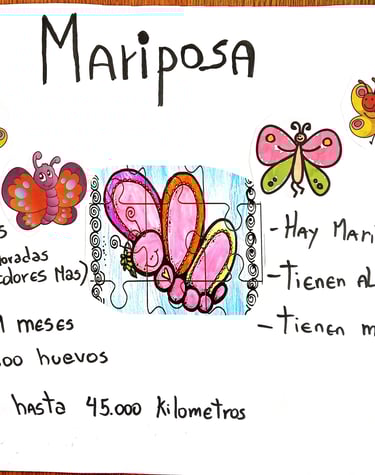 Mariposa
- Hay Mari
oradas
colores Mas)
- Tienen al
1 meses
- Tienen m
00 huevos
hasta 45.000 Kilometros